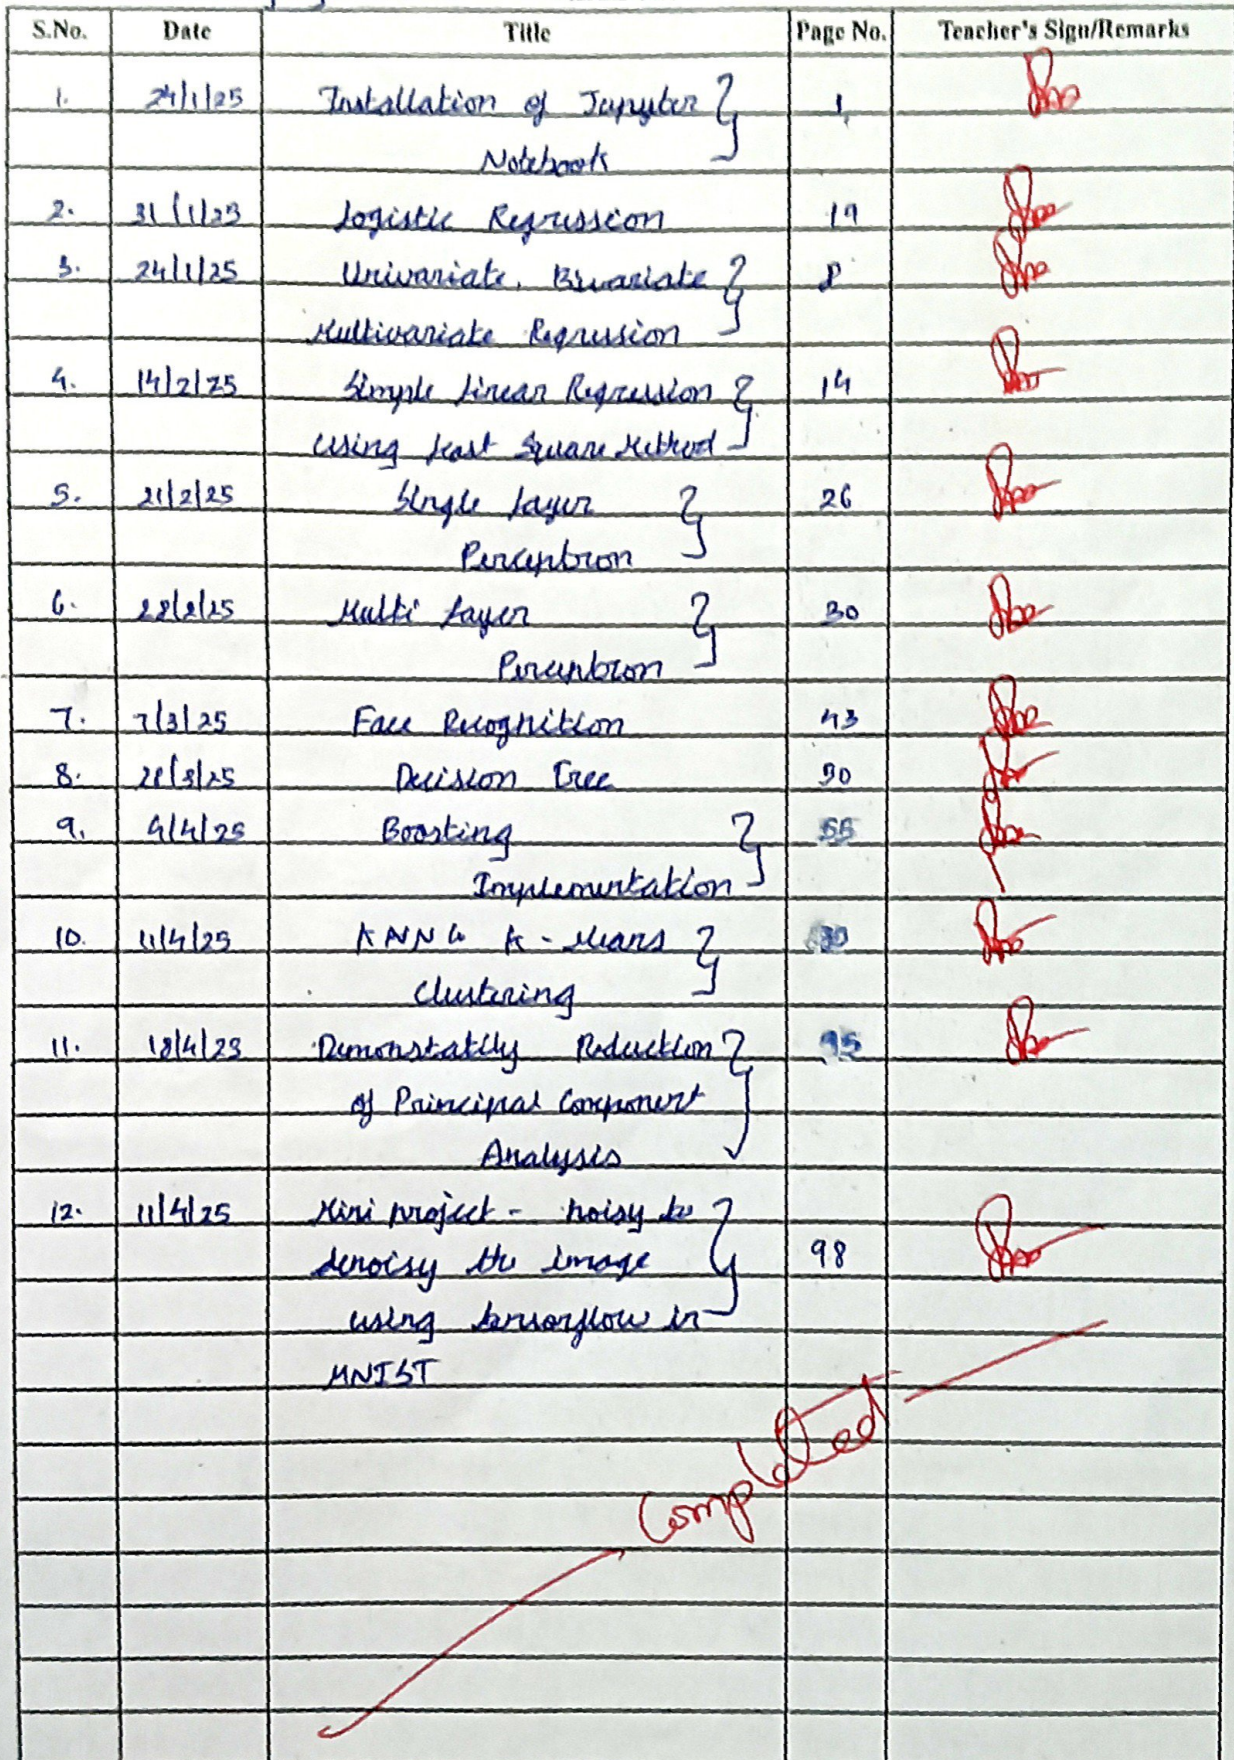 S.No. Date Title Page No. Teacher's Sign/Remarks
1. 24/1/25 Installation of Jupyter 1
Notebook
2. 31/1/25 Logistic Regression 19
3. 24/1/25 Univariate, Bivariate 8
Multivariate Regression
4. 14/2/25 Simple Linear Regression 14
using Least Square Method
5. 21/2/25 Single Layer 26
Perceptron
6. 28/2/25 Multi Layer 30
Perceptron
7. 7/3/25 Face Recognition 43
8. 28/3/25 Decision Tree 50
9. 4/4/25 Boosting 55
Implementation
10. 11/4/25 KNN & K-Means
Clustering
11. 18/4/25 Reduction 95
of Principal Component
Analysis
12. 11/4/25 Mini project - noisy to
denoisy the image 98
using tensorflow in
MNIST
Completed